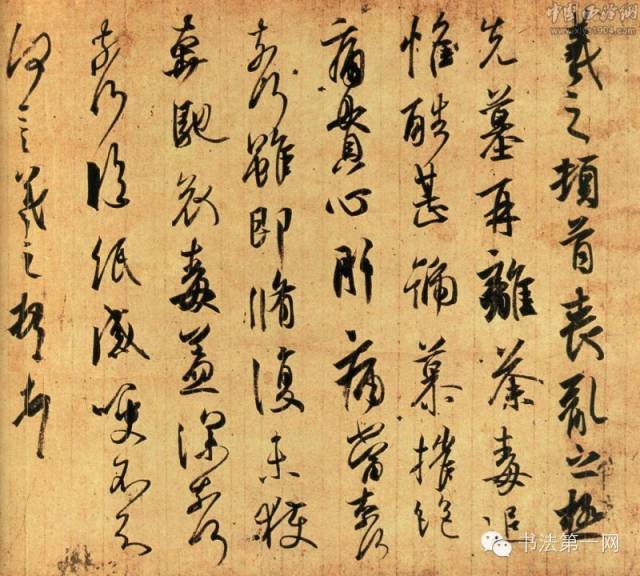 羲之頓首喪亂之極
先墓再離荼毒追
惟酷甚號慕摧絕
痛貫心肝痛當奈何
奈何雖即脩復未獲
奔馳哀毒益深奈何
奈何臨紙感哽不知
何言羲之頓首
书法第一网